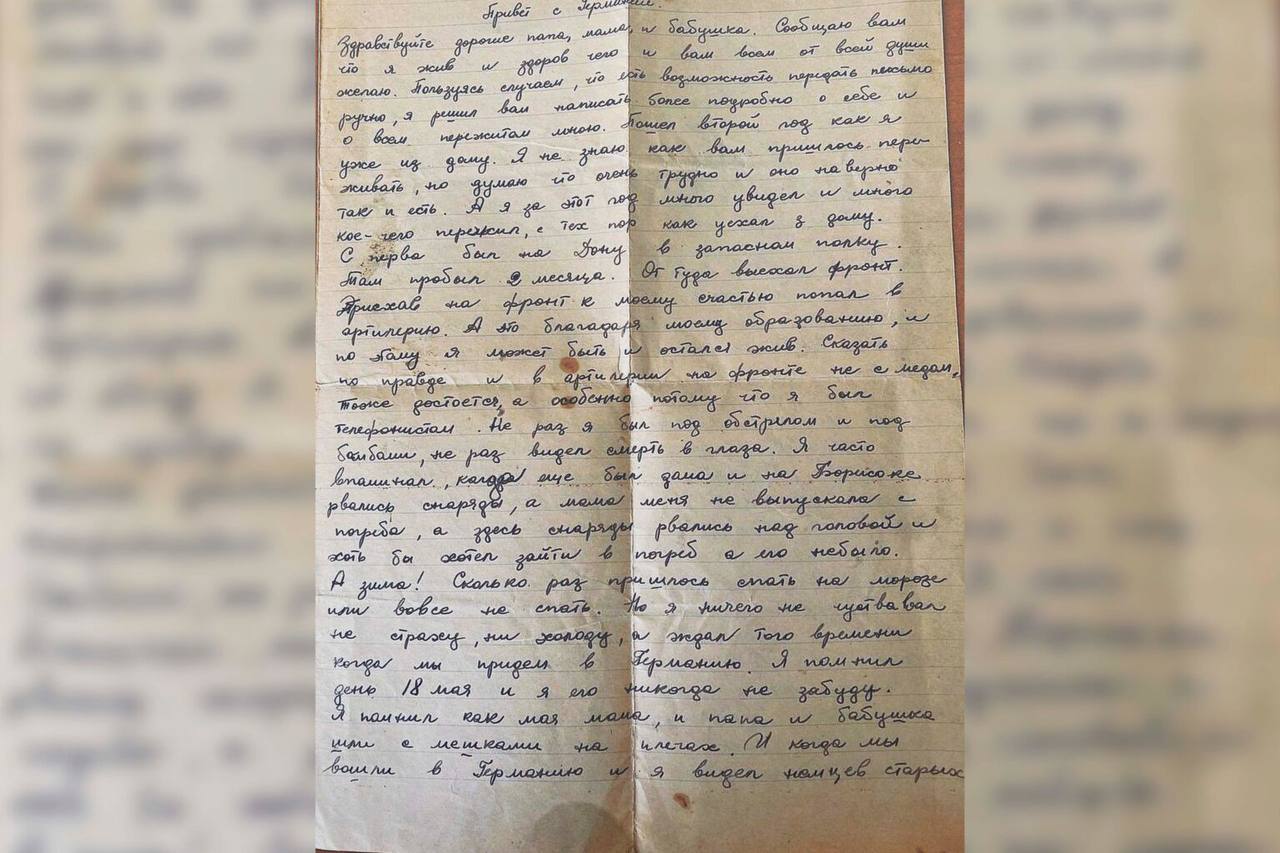 Привет с Германии.
Здравствуйте дорогие папа, мама, и бабушка. Сообщаю вам
что я жив и здоров чего и вам всем от всей души
желаю. Пользуясь случаем, что есть возможность передать письмо
ручно, я решил вам написать более подробно о себе и
о всем пережитам мною. Пошел второй год как я
уже из дому. Я не знаю как вам пришлось пере-
живать, но думаю что очень трудно и оно наверно
так и есть. А я за этот год много увидел и много
кое-чего пережил, с тех пор как уехал з дому.
С перва был на Дону в запаснам полку.
Там пробыл 2 месяца. От туда выехал фронт.
Приехав на фронт к моему счастью попал в
артилерию. А это благодаря моему образованию, и
по этаму я может быть и остался жив. Сказать
по правде и в артилерии на фронте не с медам,
тоже достоется, а особенно потому что я был
телефонистам. Не раз я был под обстрелом и под
бамбами, не раз видел смерть в глаза. Я часто
впаминал, кагда еще был дама и на Борисоке
рвались снаряды, а мама меня не выпускала с
погреба, а здесь снаряды рвались над головой и
хоть бы хотел зайти в погреб а его небыло.
А зима! Сколько раз пришлось спать на морозе
или вовсе не спать. Но я ничего не чуствавал
не страху, ни холоду, а ждал того времени
когда мы придем в Германию. Я помнил
день 18 мая и я его никогда не забуду.
Я памнил как мая мама, и папа и бабушка
шли с мешками на плечах. И когда мы
вошли в Германию и я видел немцев старых